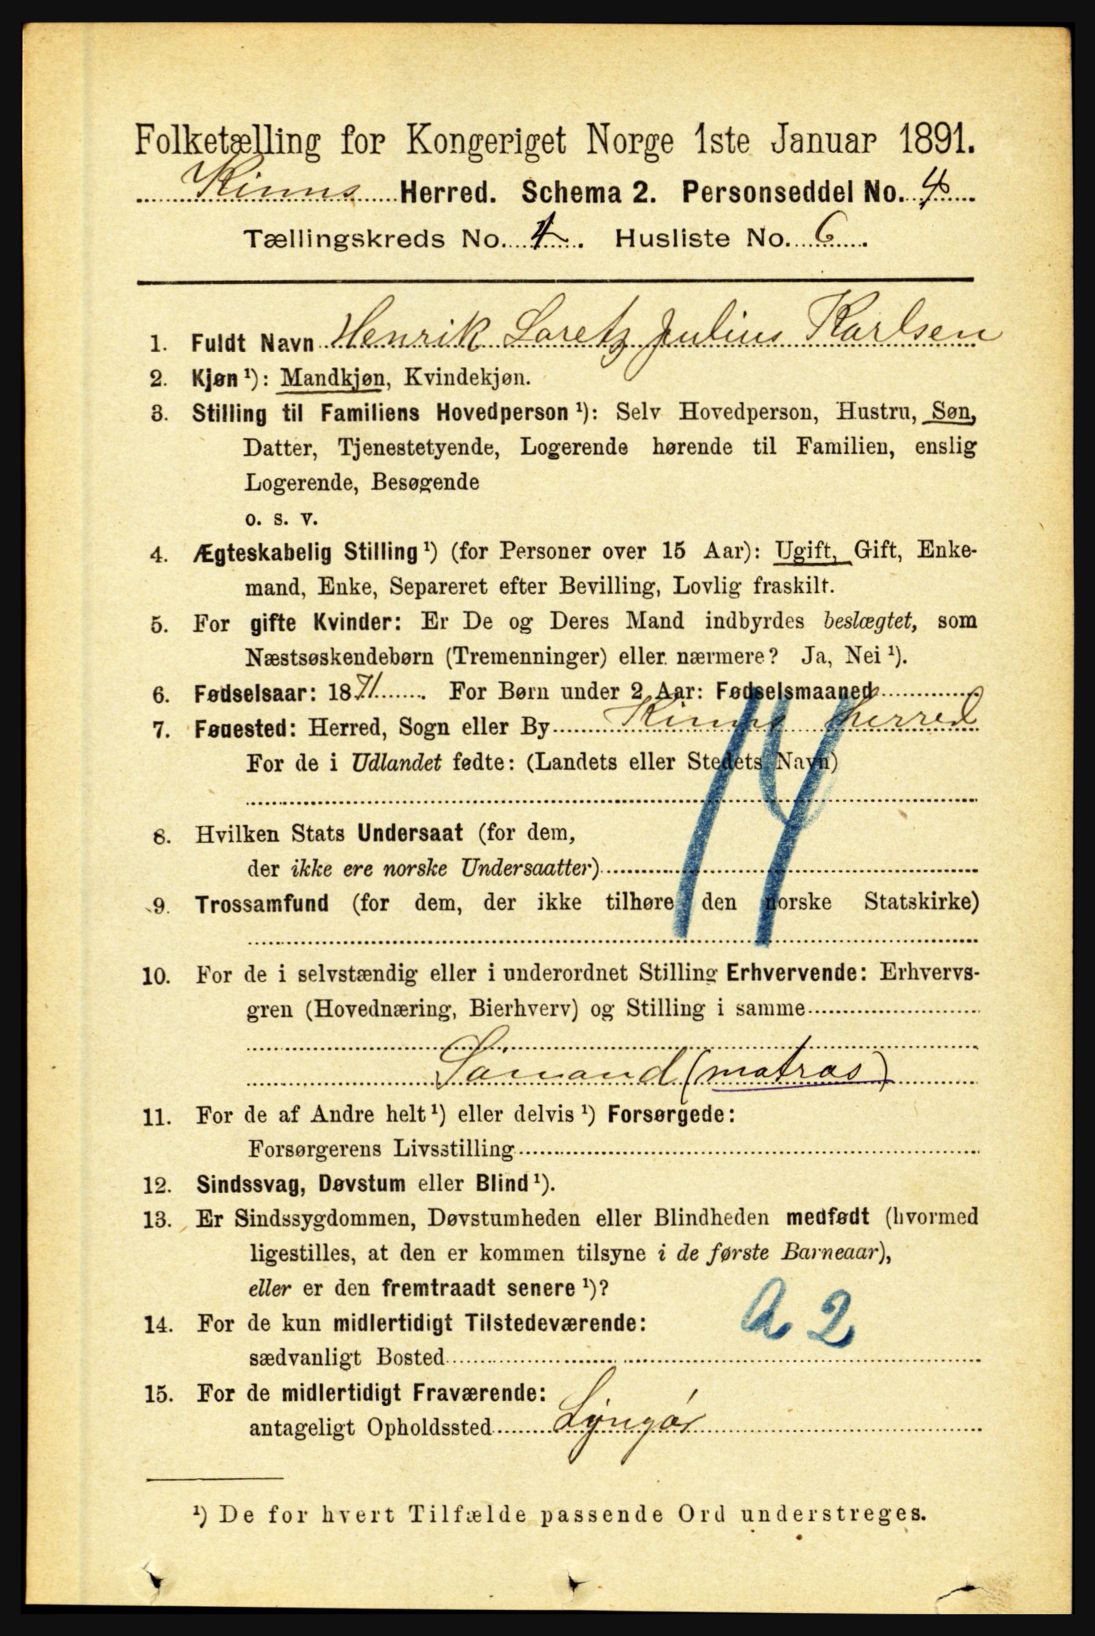 Folketælling for Kongeriget Norge 1ste Januar 1891.
Kinns Herred. Schema 2. Personseddel No. 4
Tællingskreds No. 4. Husliste No. 6.
1. Fuldt Navn Henrik Loretz Julius Karlsen
2. Kjøn ¹): Mandkjøn, Kvindekjøn.
3. Stilling til Familiens Hovedperson ¹): Selv Hovedperson, Hustru, Søn,
Datter, Tjenestetyende, Logerende hørende til Familien, enslig
Logerende, Besøgende
o. s. v.
4. Ægteskabelig Stilling ¹) (for Personer over 15 Aar): Ugift, Gift, Enke-
mand, Enke, Separeret efter Bevilling, Lovlig fraskilt.
5. For gifte Kvinder: Er De og Deres Mand indbyrdes beslægtet, som
Næstsøskendebørn (Tremenninger) eller nærmere? Ja, Nei ¹).
6. Fødselsaar: 1871. For Børn under 2 Aar: Fødselsmaaned
7. Fødested: Herred, Sogn eller By Kinns herred
For de i Udlandet fødte: (Landets eller Stedets Navn)
14
8. Hvilken Stats Undersaat (for dem,
der ikke ere norske Undersaatter)
9. Trossamfund (for dem, der ikke tilhøre den norske Statskirke)
10. For de i selvstændig eller i underordnet Stilling Erhvervende: Erhvervs-
gren (Hovednæring, Bierhverv) og Stilling i samme
Sømand (matros)
11. For de af Andre helt ¹) eller delvis ¹) Forsørgede:
Forsørgerens Livsstilling
12. Sindssvag, Døvstum eller Blind ¹).
13. Er Sindssygdommen, Døvstumheden eller Blindheden medfødt (hvormed
ligestilles, at den er kommen tilsyne i de første Barneaar),
eller er den fremtraadt senere ¹)?
a 2
14. For de kun midlertidigt Tilstedeværende:
sædvanligt Bosted
15. For de midlertidigt Fraværende:
antageligt Opholdssted Lyngør
¹) De for hvert Tilfælde passende Ord understreges.